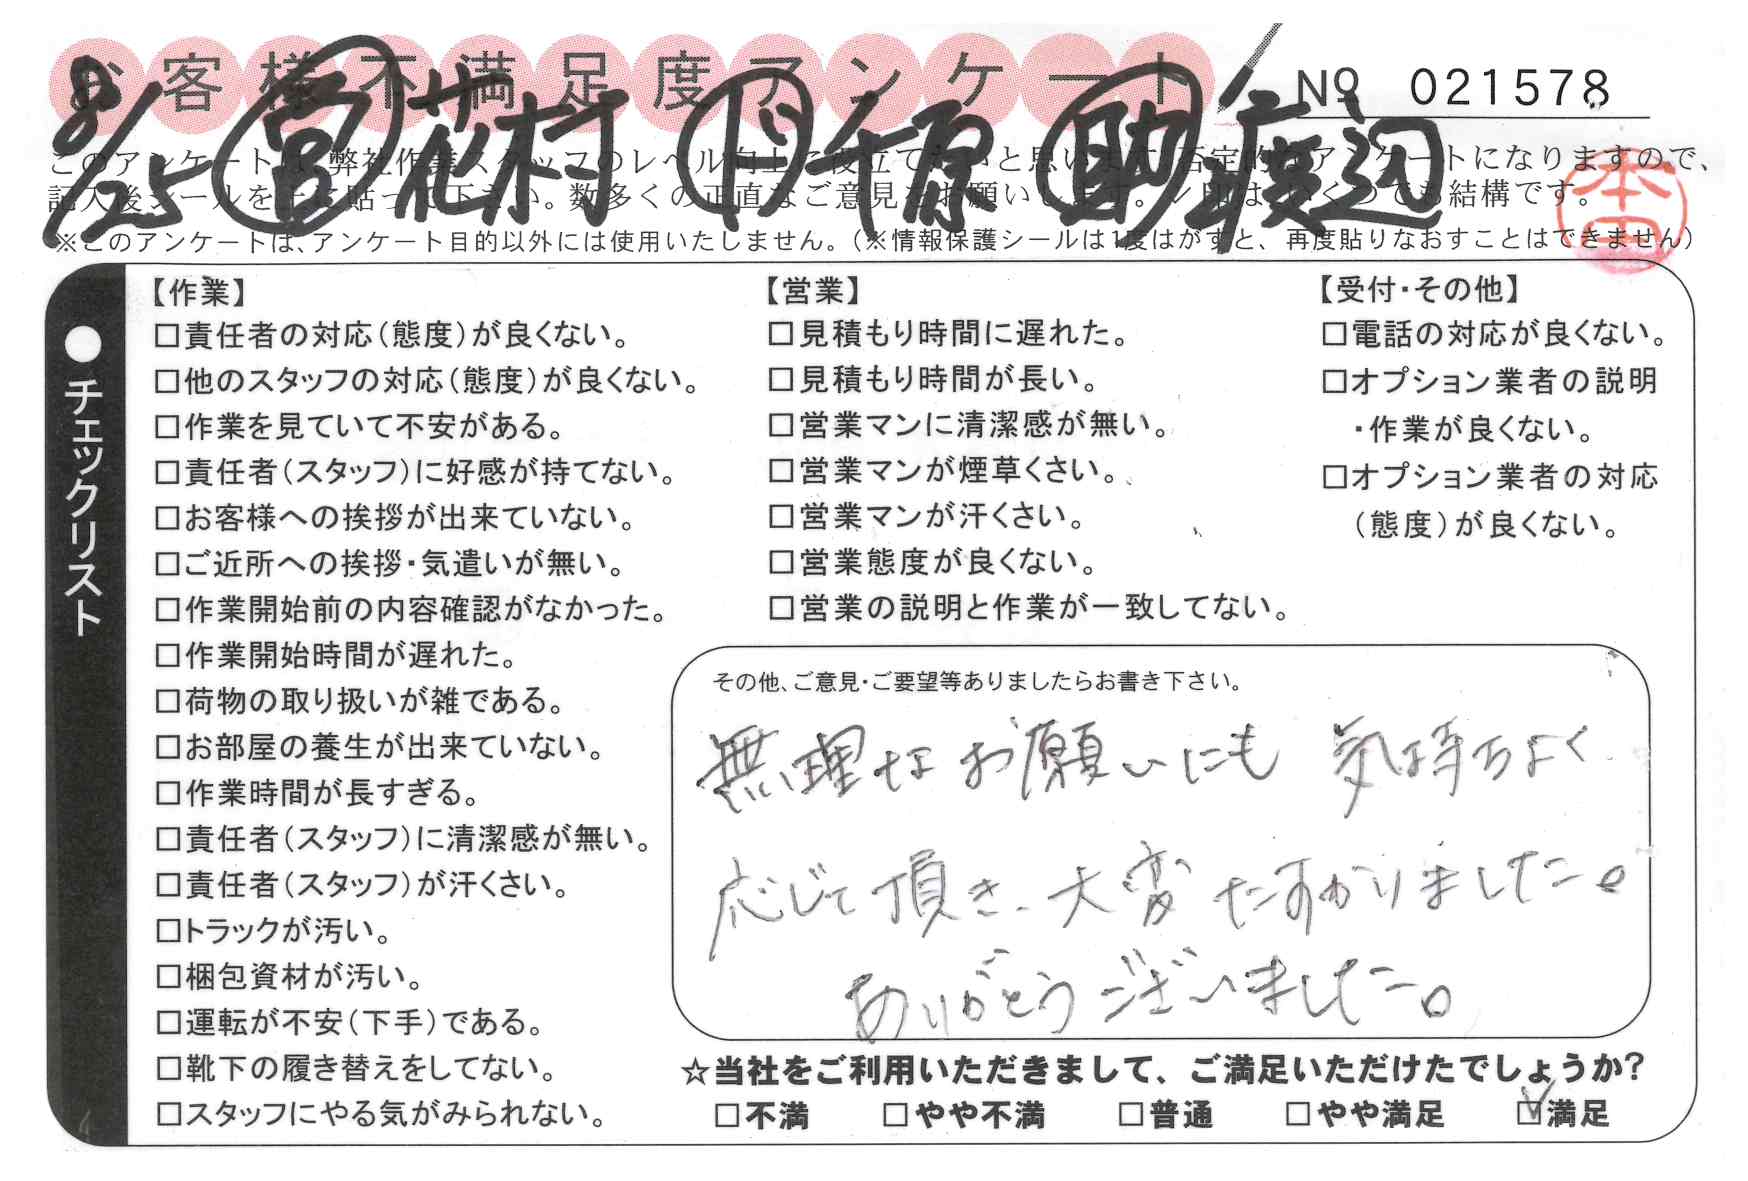 お客様不満足度アンケート
№ 021578
8/25 営 花村 千原 助 渡辺
このアンケートは、弊社作業スタッフのレベル向上に役立てたいと思います。否定的なアンケートになりますので、
記入後シールを上に貼って下さい。数多くの正直なご意見をお願いします。✓印はいくつでも結構です。
※このアンケートは、アンケート目的以外には使用いたしません。(※情報保護シールは1度はがすと、再度貼りなおすことはできません)
本田
●チェックリスト
【作業】
□責任者の対応(態度)が良くない。
□他のスタッフの対応(態度)が良くない。
□作業を見ていて不安がある。
□責任者(スタッフ)に好感が持てない。
□お客様への挨拶が出来ていない。
□ご近所への挨拶・気遣いが無い。
□作業開始前の内容確認がなかった。
□作業開始時間が遅れた。
□荷物の取り扱いが雑である。
□お部屋の養生が出来ていない。
□作業時間が長すぎる。
□責任者(スタッフ)に清潔感が無い。
□責任者(スタッフ)が汗くさい。
□トラックが汚い。
□梱包資材が汚い。
□運転が不安(下手)である。
□靴下の履き替えをしてない。
□スタッフにやる気がみられない。
【営業】
□見積もり時間に遅れた。
□見積もり時間が長い。
□営業マンに清潔感が無い。
□営業マンが煙草くさい。
□営業マンが汗くさい。
□営業態度が良くない。
□営業の説明と作業が一致してない。
【受付・その他】
□電話の対応が良くない。
□オプション業者の説明
・作業が良くない。
□オプション業者の対応
(態度)が良くない。
その他、ご意見・ご要望等ありましたらお書き下さい。
無理なお願いにも 気持ちよく
応じて頂き、大変たすかりました。
ありがとうございました。
☆当社をご利用いただきまして、ご満足いただけたでしょうか?
□不満 □やや不満 □普通 □やや満足 ☑満足